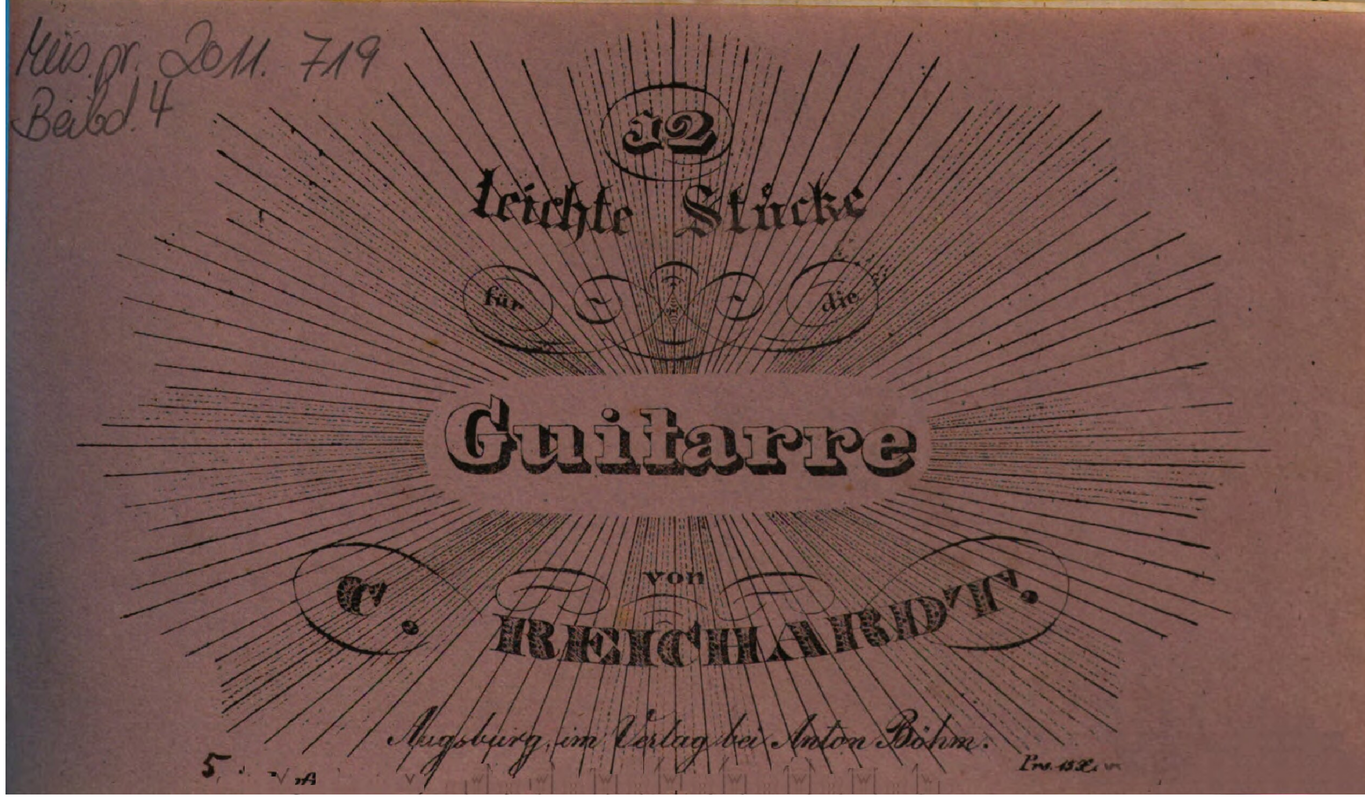 Mus. pr. 2011. 719
Beibd. 4
12
leichte Stücke
für die
Guitarre
von
C. REICHARDT.
Augsburg, im Verlag bei Anton Böhm.
5